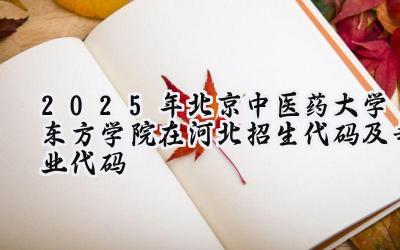 2025年北京中医药大学
东方学院在河北招生代码及
业代码